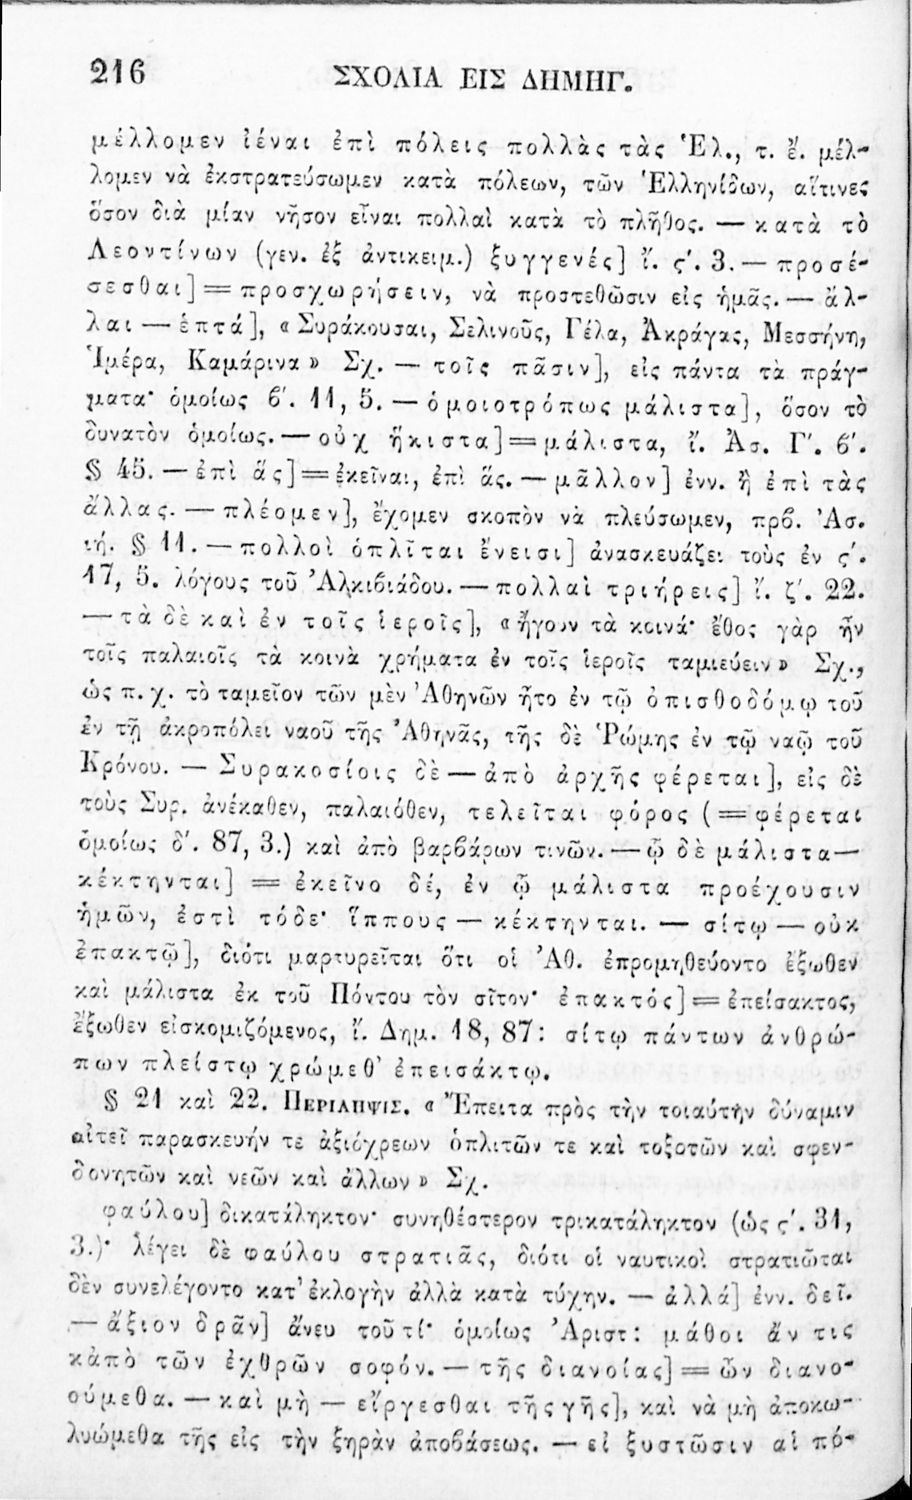 216 ΣΧΟΛΙΑ ΕΙΣ ΔΗΜΗΓ.
μέλλομεν ἰέναι ἐπὶ πόλεις πολλὰς τὰς Ἑλ., τ. ἔ. μέλ-
λομεν νὰ ἐκστρατεύσωμεν κατὰ πόλεων, τῶν Ἑλληνίδων, αἵτινες
ὅσον διὰ μίαν νῆσον εἶναι πολλαὶ κατὰ τὸ πλῆθος. — κατὰ τὸ
Λεοντίνων (γεν. ἐξ ἀντικειμ.) ξυγγενές] ἴ. ς΄. 3. — προσέ-
σεσθαι] = προσχωρήσειν, νὰ προστεθῶσιν εἰς ἡμᾶς. — ἄλ-
λαι — ἑπτά], « Συράκουσαι, Σελινοῦς, Γέλα, Ἀκράγας, Μεσσήνη,
Ἱμέρα, Καμάρινα » Σχ. — τοῖς πᾶσιν], εἰς πάντα τὰ πράγ-
ματα· ὁμοίως β΄. 11, 5. — ὁμοιοτρόπως μάλιστα], ὅσον τὸ
δυνατὸν ὁμοίως. — οὐχ ἥκιστα] = μάλιστα, ἴ. Ἀσ. Γ΄. β΄.
§ 45. — ἐπὶ ἅς] = ἐκεῖναι, ἐπὶ ἅς. — μᾶλλον] ἐνν. ἢ ἐπὶ τὰς
ἄλλας. — πλέομεν], ἔχομεν σκοπὸν νὰ πλεύσωμεν, πρβ. Ἀσ.
ιή. § 11. — πολλοὶ ὁπλῖται ἔνεισι] ἀνασκευάζει τοὺς ἐν ς΄.
17, 5. λόγους τοῦ Ἀλκιβιάδου. — πολλαὶ τριήρεις] ἴ. ζ΄. 22.
— τὰ δὲ καὶ ἐν τοῖς ἱεροῖς], « ἤγουν τὰ κοινά· ἔθος γὰρ ἦν
τοῖς παλαιοῖς τὰ κοινὰ χρήματα ἐν τοῖς ἱεροῖς ταμιεύειν » Σχ.,
ὡς π. χ. τὸ ταμεῖον τῶν μὲν Ἀθηνῶν ἦτο ἐν τῷ ὀπισθοδόμῳ τοῦ
ἐν τῇ ἀκροπόλει ναοῦ τῆς Ἀθηνᾶς, τῆς δὲ Ῥώμης ἐν τῷ ναῷ τοῦ
Κρόνου. — Συρακοσίοις δὲ — ἀπὸ ἀρχῆς φέρεται], εἰς δὲ
τοὺς Συρ. ἀνέκαθεν, παλαιόθεν, τελεῖται φόρος ( = φέρεται
ὁμοίως δ΄. 87, 3.) καὶ ἀπὸ βαρβάρων τινῶν. — ᾧ δὲ μάλιστα —
κέκτηνται] = ἐκεῖνο δέ, ἐν ᾧ μάλιστα προέχουσιν
ἡμῶν, ἐστὶ τόδε· ἵππους — κέκτηνται. — σίτῳ — οὐκ
ἐπακτῷ], διότι μαρτυρεῖται ὅτι οἱ Ἀθ. ἐπρομηθεύοντο ἔξωθεν
καὶ μάλιστα ἐκ τοῦ Πόντου τὸν σῖτον· ἐπακτός] = ἐπείσακτος,
ἔξωθεν εἰσκομιζόμενος, ἴ. Δημ. 18, 87: σίτῳ πάντων ἀνθρώ-
πων πλείστῳ χρώμεθ' ἐπεισάκτῳ.
§ 21 καὶ 22. ΠΕΡΙΛΗΨΙΣ. « Ἔπειτα πρὸς τὴν τοιαύτην δύναμιν
αἰτεῖ παρασκευήν τε ἀξιόχρεων ὁπλιτῶν τε καὶ τοξοτῶν καὶ σφεν-
δονητῶν καὶ νεῶν καὶ ἄλλων » Σχ.
φαύλου] δικατάληκτον· συνηθέστερον τρικατάληκτον (ὡς ς΄. 31,
3.)· λέγει δὲ φαύλου στρατιᾶς, διότι οἱ ναυτικοὶ στρατιῶται
δὲν συνελέγοντο κατ' ἐκλογὴν ἀλλὰ κατὰ τύχην. — ἀλλά] ἐνν. δεῖ.
— ἄξιον δρᾶν] ἄνευ τοῦ τί· ὁμοίως Ἀριστ: μάθοι ἄν τις
κἀπὸ τῶν ἐχθρῶν σοφόν. — τῆς διανοίας] = ὧν διανο-
ούμεθα. — καὶ μὴ — εἴργεσθαι τῆς γῆς], καὶ νὰ μὴ ἀποκω-
λυώμεθα τῆς εἰς τὴν ξηρὰν ἀποβάσεως. — εἰ ξυστῶσιν αἱ πό-